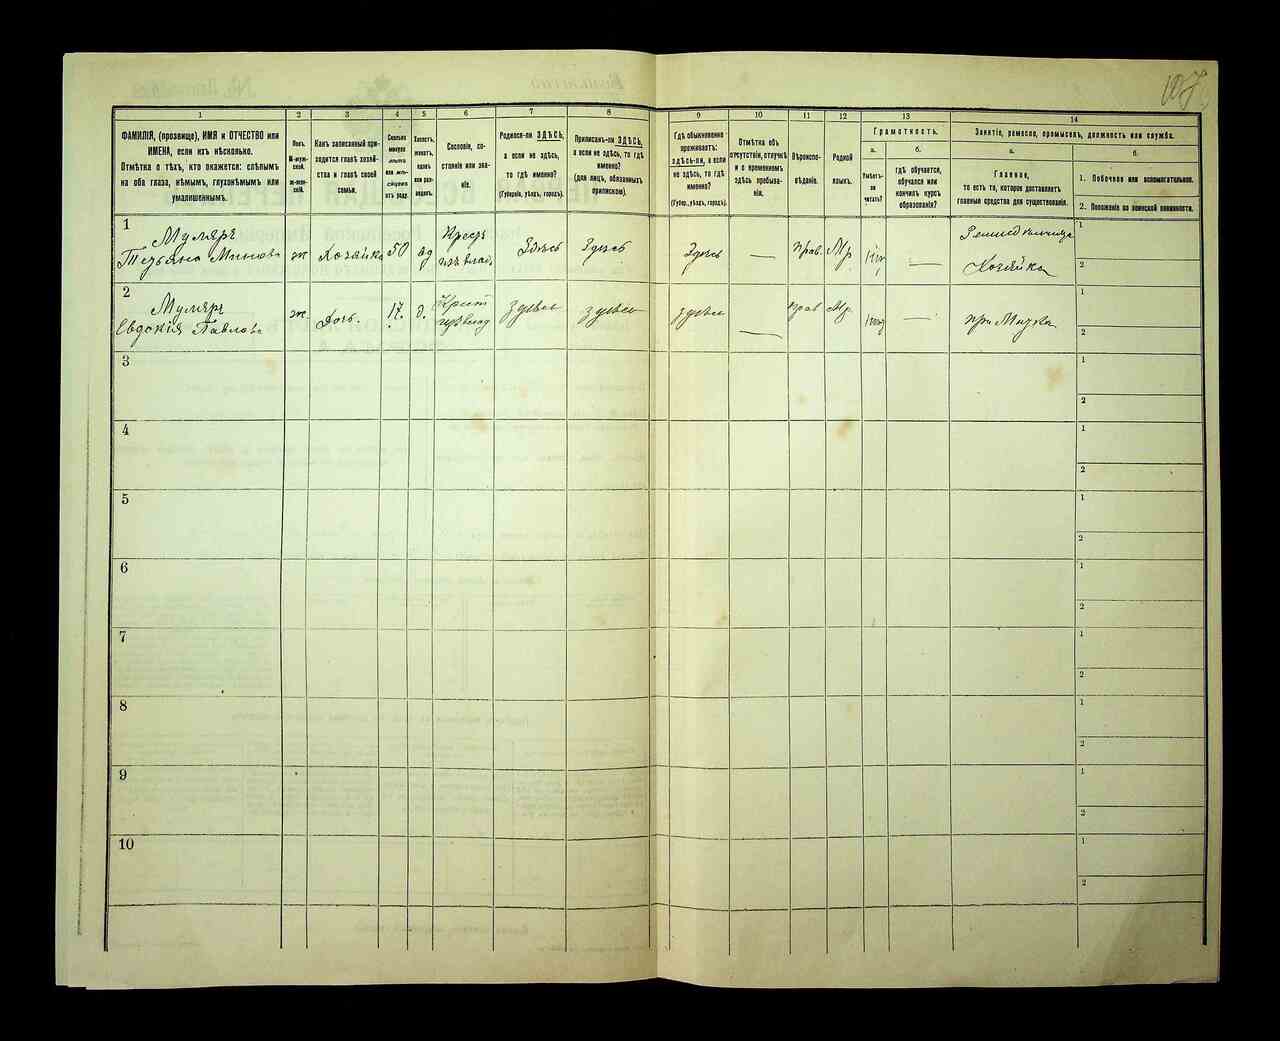 107
1
2
3
4
5
6
7
8
9
10
11
12
13
14
ФАМИЛІЯ, (прозвище), ИМЯ и ОТЧЕСТВО или
ИМЕНА, если ихъ нѣсколько.
Отмѣтка о тѣхъ, кто окажется: слѣпымъ
на оба глаза, нѣмымъ, глухонѣмымъ или
умалишеннымъ.
Полъ.
М-муж-
ской.
ж-жен-
скій.
Какъ записанный при-
ходится главѣ хозяй-
ства и главѣ своей
семьи.
Сколько
минуло
лѣтъ
или мѣ-
сяцевъ
отъ роду.
Холостъ,
женатъ,
вдовъ
или раз-
веденъ.
Сословіе, со-
стояніе или зва-
ніе.
Родился-ли ЗДѢСЬ,
а если не здѣсь,
то гдѣ именно?
(Губернія, уѣздъ, городъ).
Приписанъ-ли ЗДѢСЬ,
а если не здѣсь, то гдѣ
именно?
(для лицъ, обязанныхъ
припискою).
Гдѣ обыкновенно
проживаетъ:
здѣсь-ли, а если
не здѣсь, то гдѣ
именно?
(Губер., уѣздъ, городъ).
Отмѣтка объ
отсутствіи, отлучкѣ
и о временномъ
здѣсь пребыва-
ніи.
Вѣроиспо-
вѣданіе.
Родной
языкъ.
Грамотность.
а.
Умѣетъ-
ли
читать?
б.
гдѣ обучается,
обучался или
кончилъ курсъ
образованія?
Занятіе, ремесло, промыселъ, должность или служба.
а.
Главное,
то есть то, которое доставляетъ
главныя средства для существованія.
б.
1. Побочное или вспомогательное.
2. Положеніе по воинской повинности.
1
Муляръ
ж
Хозяйка
50
вд
Здѣсь
Здѣсь
Здѣсь
—
прав.
Мр.
—
Хозяйка
1
2
2
Муляръ
Евдокія Павлова
ж
Дочь.
17.
д.
здѣсь
здѣсь
здѣсь
—
прав
Мр.
—
1
2
3
1
2
4
1
2
5
1
2
6
1
2
7
1
2
8
1
2
9
1
2
10
1
2